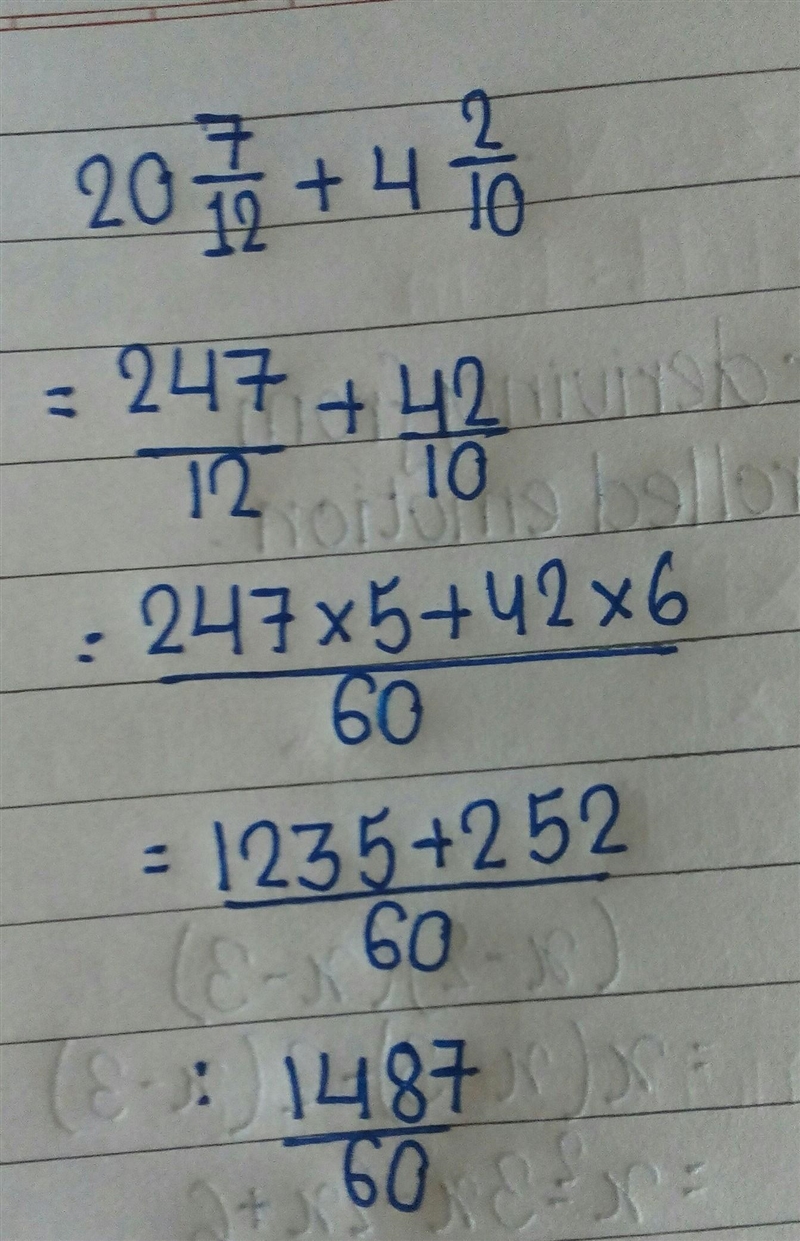 20 7/12 + 4 2/10
= 247/12 + 42/10
= (247×5+42×6)/60
= (1235+252)/60
= 1487/60